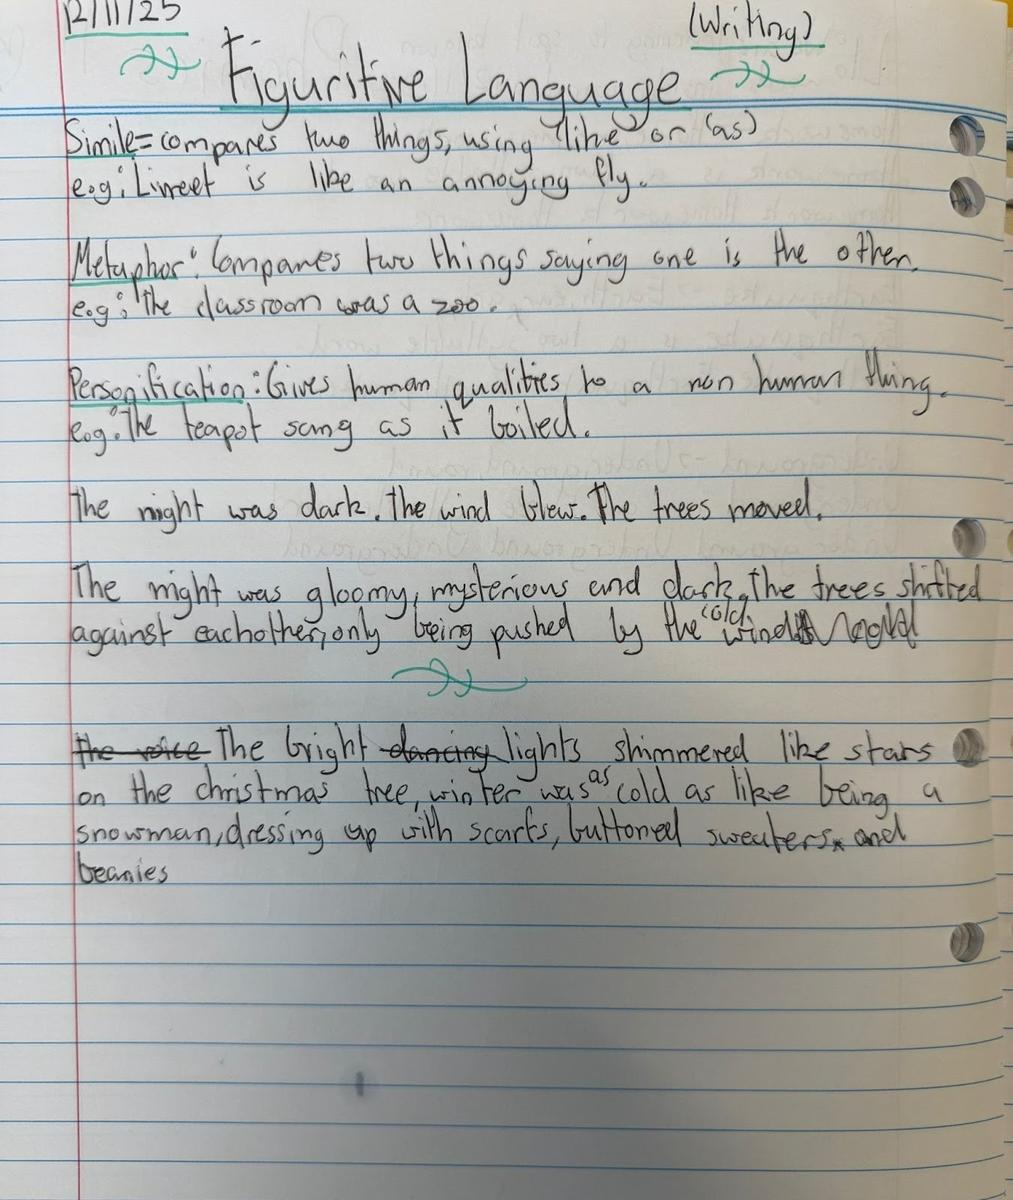 12/11/25
(Writing)
Figuritive Language
Simile= compares two things, using 'like' or 'as'
e.g: Limeet is like an annoying fly.
Metaphor: Compares two things saying one is the other.
e.g: The classroom was a zoo.
Personification: Gives human qualities to a non human thing.
e.g: The teapot sang as it boiled.
The night was dark. The wind blew. The trees moved.
The night was gloomy, mysterious and dark. The trees shifted
against eachother, only being pushed by the cold wind
the voice The bright dancing lights shimmered like stars
on the christmas tree, winter was as cold as like being a
snowman, dressing up with scarfs, buttoned sweaters and
beanies